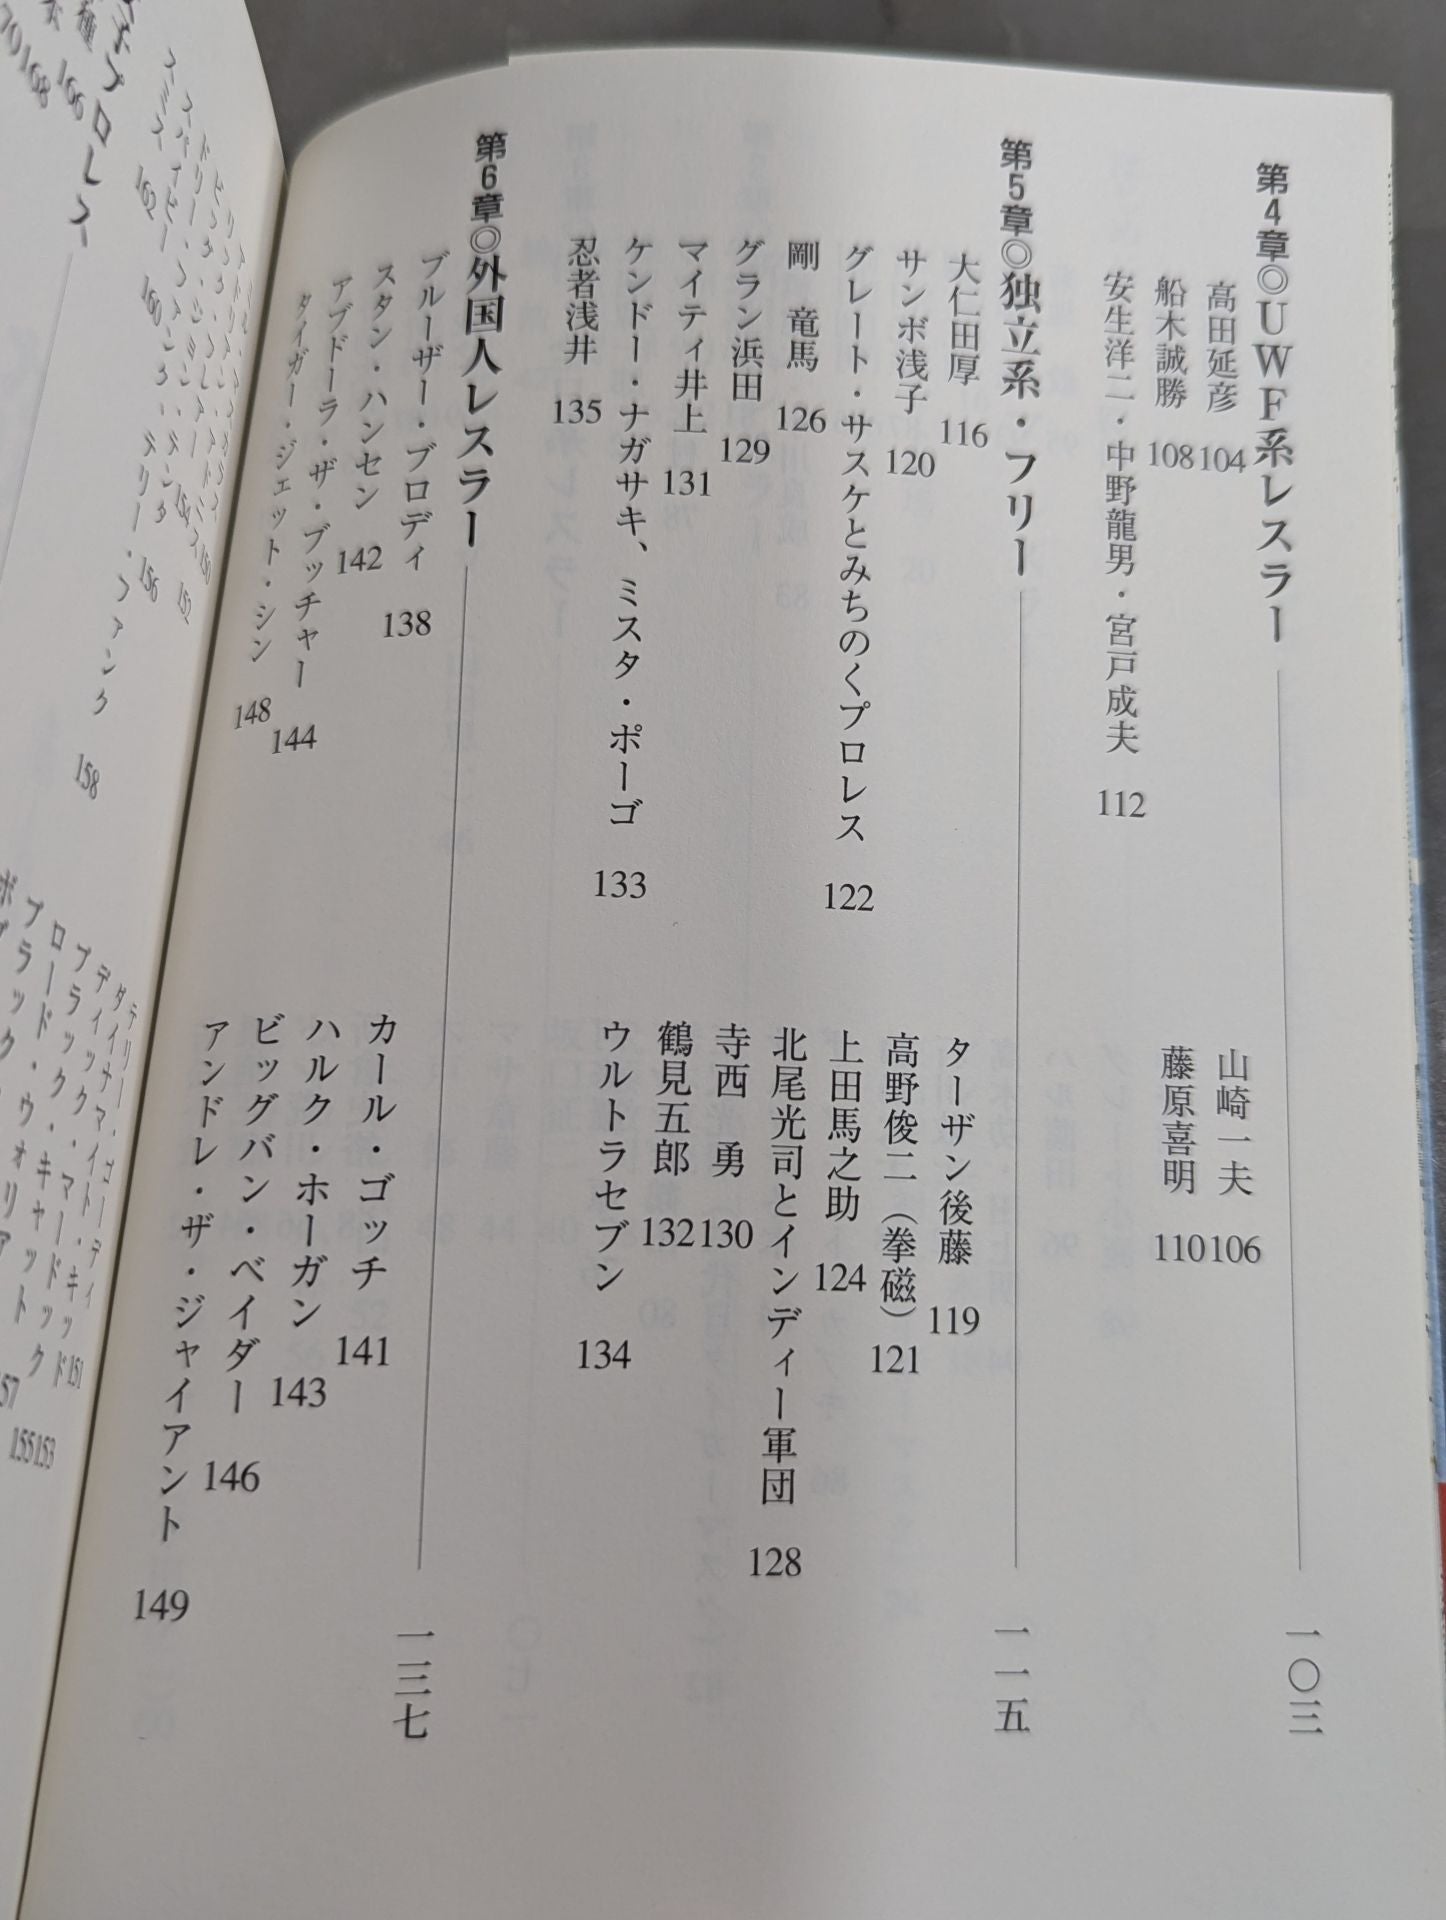 第4章◎UWF系レスラー 一〇三
高田延彦 104
山崎一夫 106
船木誠勝 108
藤原喜明 110
安生洋二・中野龍男・宮戸成夫 112
第5章◎独立系・フリー 一一五
大仁田厚 116
ターザン後藤 119
サンボ浅子 120
高野俊二（拳磁） 121
グレート・サスケとみちのくプロレス 122
上田馬之助 124
剛 竜馬 126
北尾光司とインディー軍団 128
グラン浜田 129
寺西 勇 130
マイティ井上 131
鶴見五郎 132
ケンドー・ナガサキ、ミスタ・ポーゴ 133
ウルトラセブン 134
忍者浅井 135
第6章◎外国人レスラー 一三七
ブルーザー・ブロディ 138
カール・ゴッチ 141
スタン・ハンセン 142
ハルク・ホーガン 143
アブドーラ・ザ・ブッチャー 144
ビッグバン・ベイダー 146
タイガー・ジェット・シン 148
アンドレ・ザ・ジャイアント 149
150
151
152
153
154
155
156
157
158
160
162
プロレス